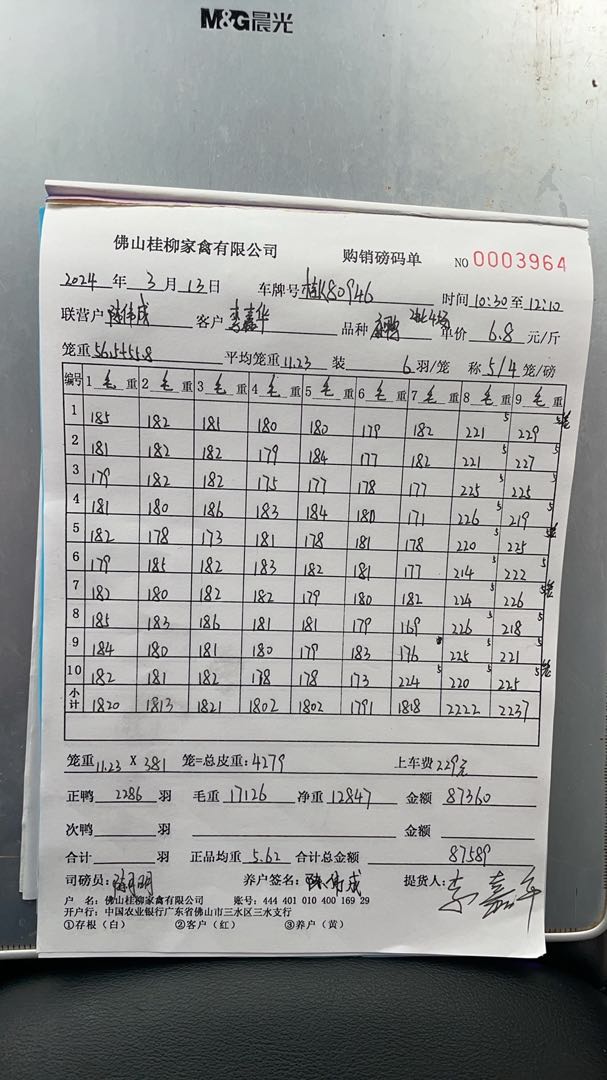 M&G晨光
佛山桂柳家禽有限公司 购销磅码单 NO 0003964
2024 年 3 月 13 日 车牌号 桂K80946 时间 10:30 至 12:10
联营户 陆伟成 客户 李嘉华 品种 单价 6.8 元/斤
笼重 56.5+55.8 平均笼重 11.23 装 6 羽/笼 称 5/4 笼/磅
编号 1 毛 重 2 毛 重 3 毛 重 4 毛 重 5 毛 重 6 毛 重 7 毛 重 8 毛 重 9 毛 重
1 185 182 181 180 180 179 182 221 5 229 5笼
2 181 182 182 179 184 177 182 221 5 227 5
3 179 182 182 175 177 178 177 225 5 225 5
4 181 180 186 183 184 180 171 226 5 219 5
5 182 178 173 181 178 181 178 220 5 225
6 179 185 182 183 182 181 177 214 5 222 5
7 182 180 182 182 179 180 182 224 5 226 5笼
8 185 183 186 181 181 179 169 226 5 218 5
9 184 180 181 180 179 183 176 225 5 221 5
10 182 181 182 178 178 173 224 5 220 5 225 5笼
小计 1820 1813 1821 1802 1802 1791 1818 2222 2237
笼重 11.23 × 381 笼=总皮重: 4279 上车费 229元
正鸭 2286 羽 毛重 17126 净重 12847 金额 87360
次鸭 羽 金额
合计 羽 正品均重 5.62 合计总金额 87589
司磅员: 养户签名: 陆伟成 提货人: 李嘉华
户 名: 佛山桂柳家禽有限公司 账号: 444 401 010 400 169 29
开户行: 中国农业银行广东省佛山市三水区三水支行
①存根（白） ②客户（红） ③养户（黄）